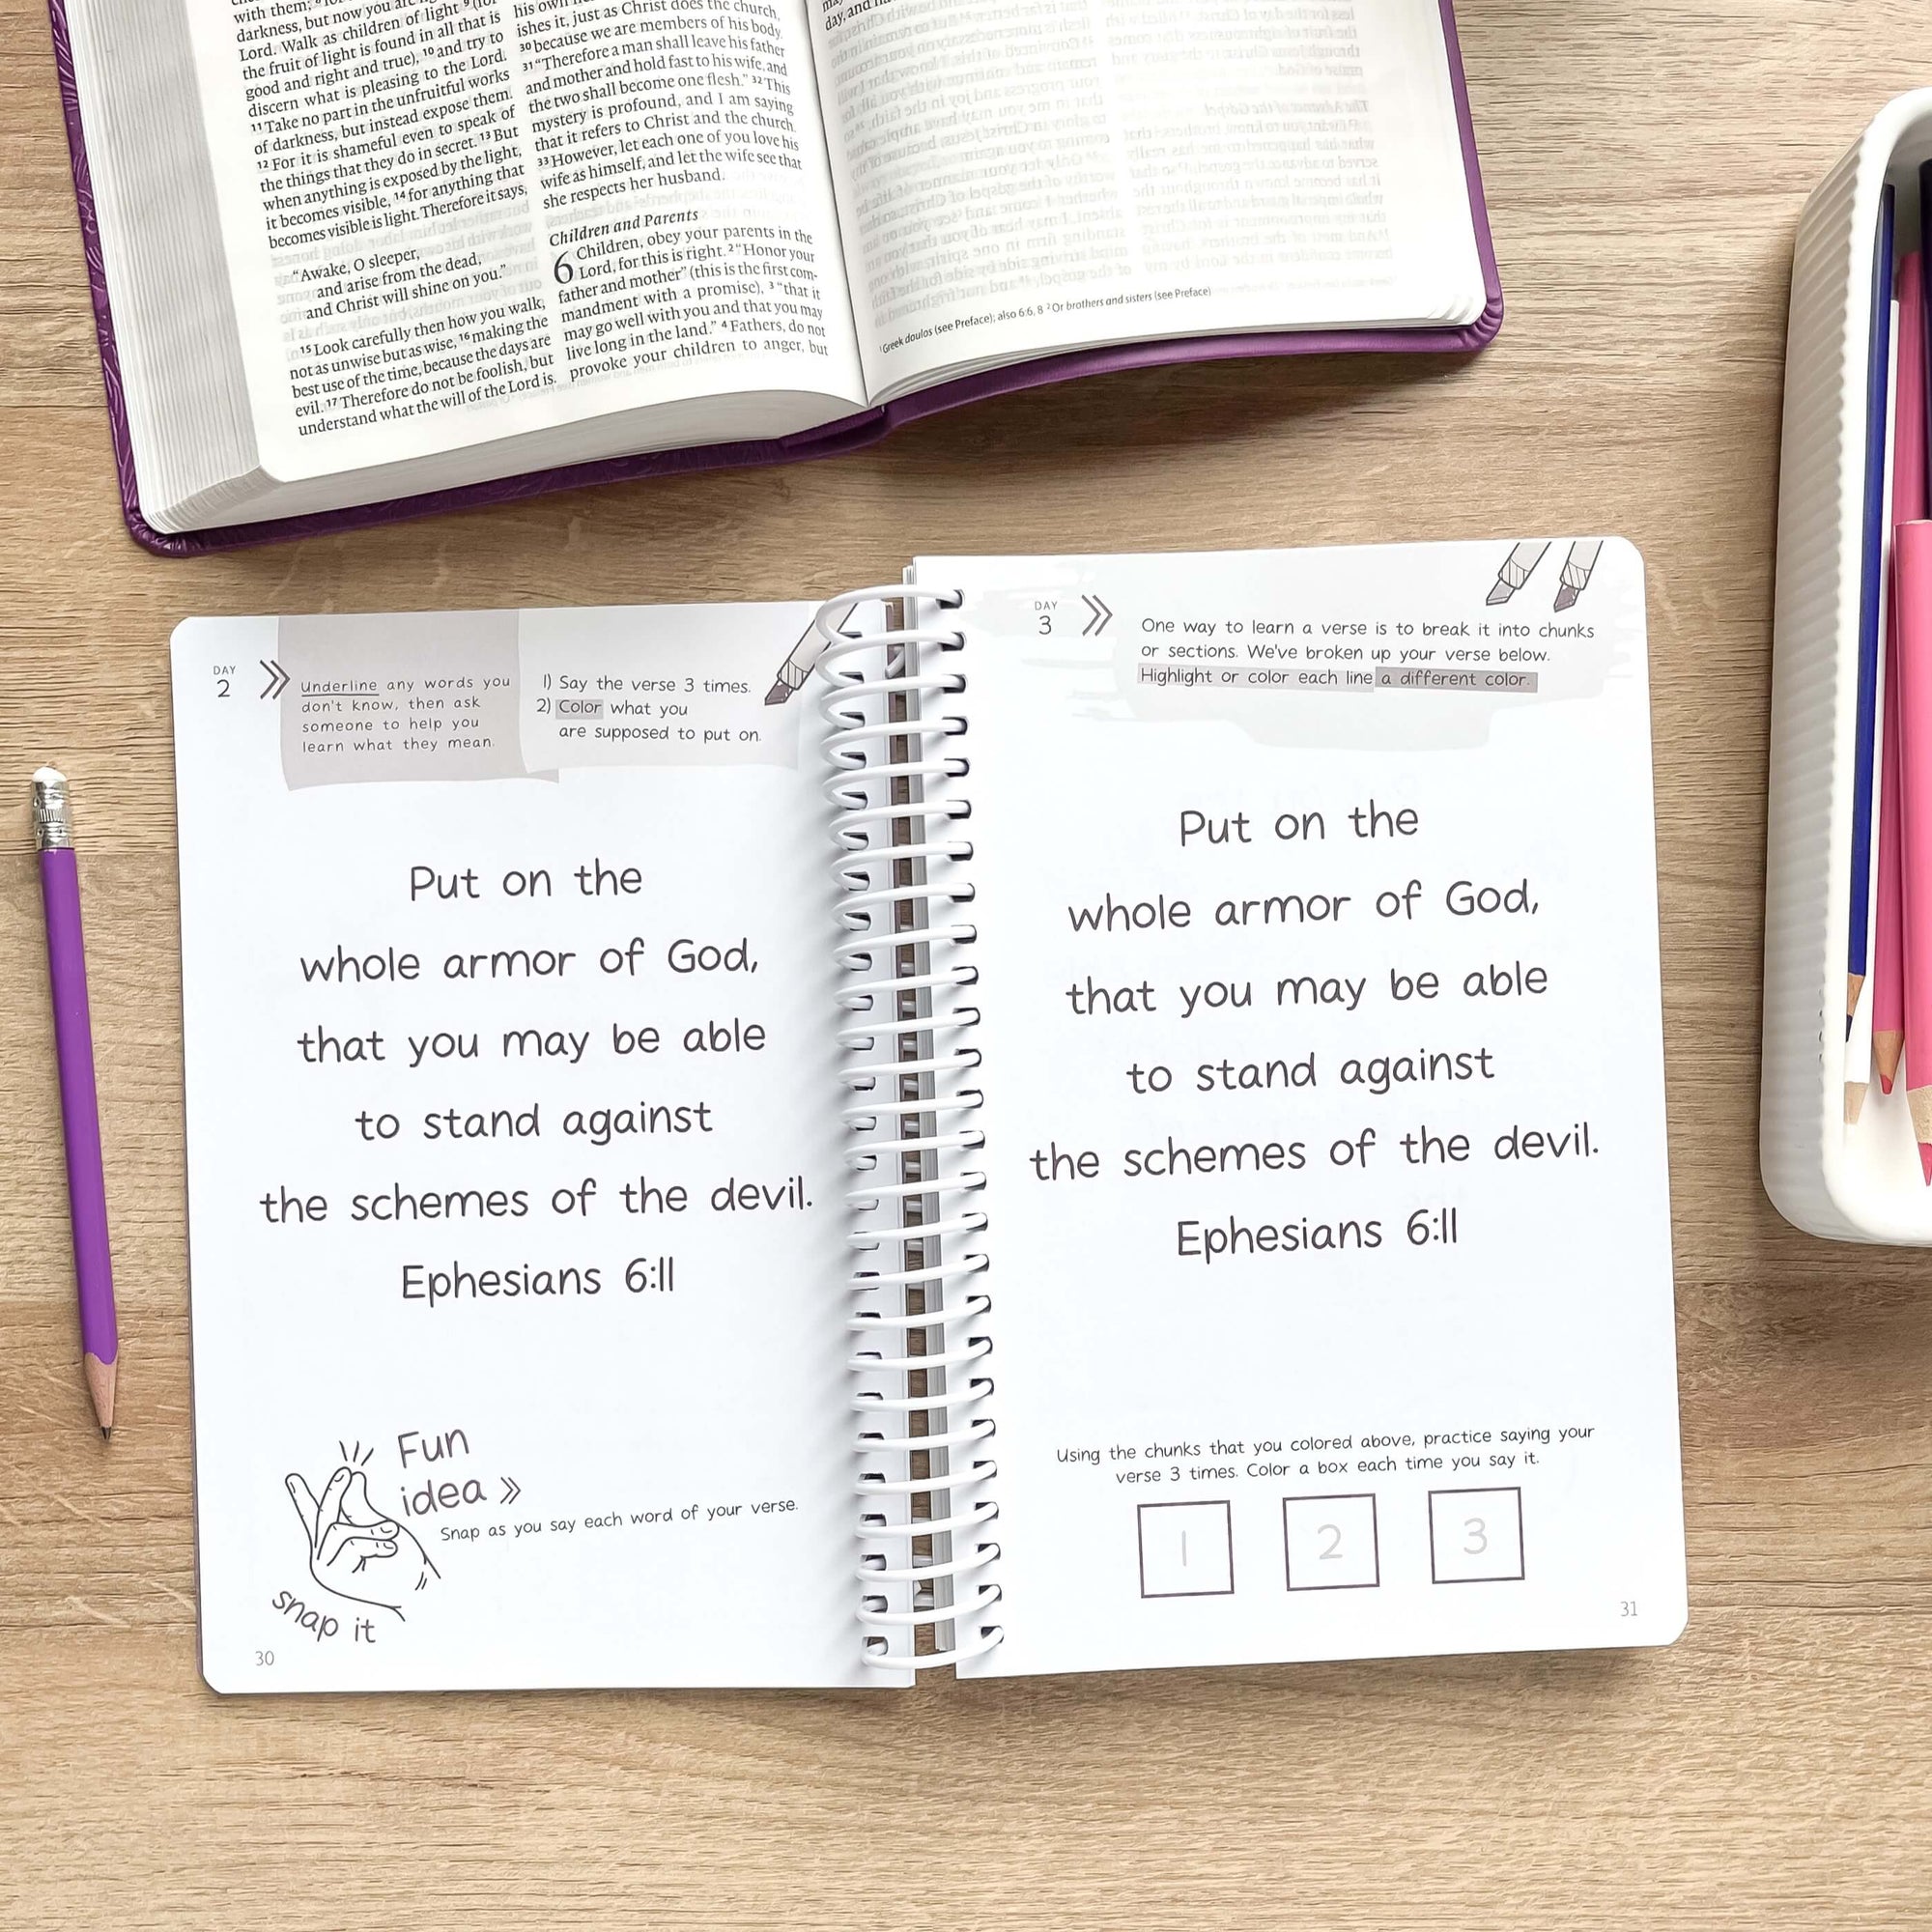 with them;
darkness, but now you are light
Lord. Walk as children of light
the fruit of light is found in all that is
good and right and true), 10 and try to
discern what is pleasing to the Lord.
11 Take no part in the unfruitful works
of darkness, but instead expose them.
12 For it is shameful even to speak of
the things that they do in secret. 13 But
when anything is exposed by the light,
it becomes visible, 14 for anything that
becomes visible is light. Therefore it says,
“Awake, O sleeper,
and arise from the dead,
and Christ will shine on you.”
15 Look carefully then how you walk,
not as unwise but as wise, 16 making the
best use of the time, because the days are
evil. 17 Therefore do not be foolish, but
understand what the will of the Lord is.
his own
ishes it, just as Christ does the church,
30 because we are members of his body.
31 “Therefore a man shall leave his father
and mother and hold fast to his wife, and
the two shall become one flesh.” 32 This
mystery is profound, and I am saying
that it refers to Christ and the church.
33 However, let each one of you love his
wife as himself, and let the wife see that
she respects her husband.
Children and Parents
6 Children, obey your parents in the
Lord, for this is right. 2 “Honor your
father and mother” (this is the first com-
mandment with a promise), 3 “that it
may go well with you and that you may
live long in the land.” 4 Fathers, do not
provoke your children to anger, but
day, and
1 Greek doulos (see Preface); also 6:6, 8 2 Or brothers and sisters (see Preface)
DAY
2
Underline any words you
don't know, then ask
someone to help you
learn what they mean.
1) Say the verse 3 times.
2) Color what you
are supposed to put on.
Put on the
whole armor of God,
that you may be able
to stand against
the schemes of the devil.
Ephesians 6:11
Fun
idea
Snap as you say each word of your verse.
snap it
30
DAY
3
One way to learn a verse is to break it into chunks
or sections. We've broken up your verse below.
Highlight or color each line a different color.
Put on the
whole armor of God,
that you may be able
to stand against
the schemes of the devil.
Ephesians 6:11
Using the chunks that you colored above, practice saying your
verse 3 times. Color a box each time you say it.
1 2 3
31